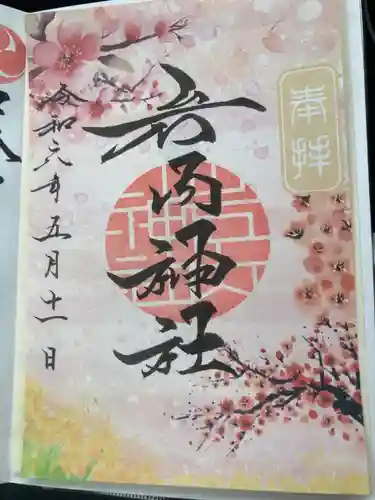 奉拝
岩内神社
令和六年五月十一日